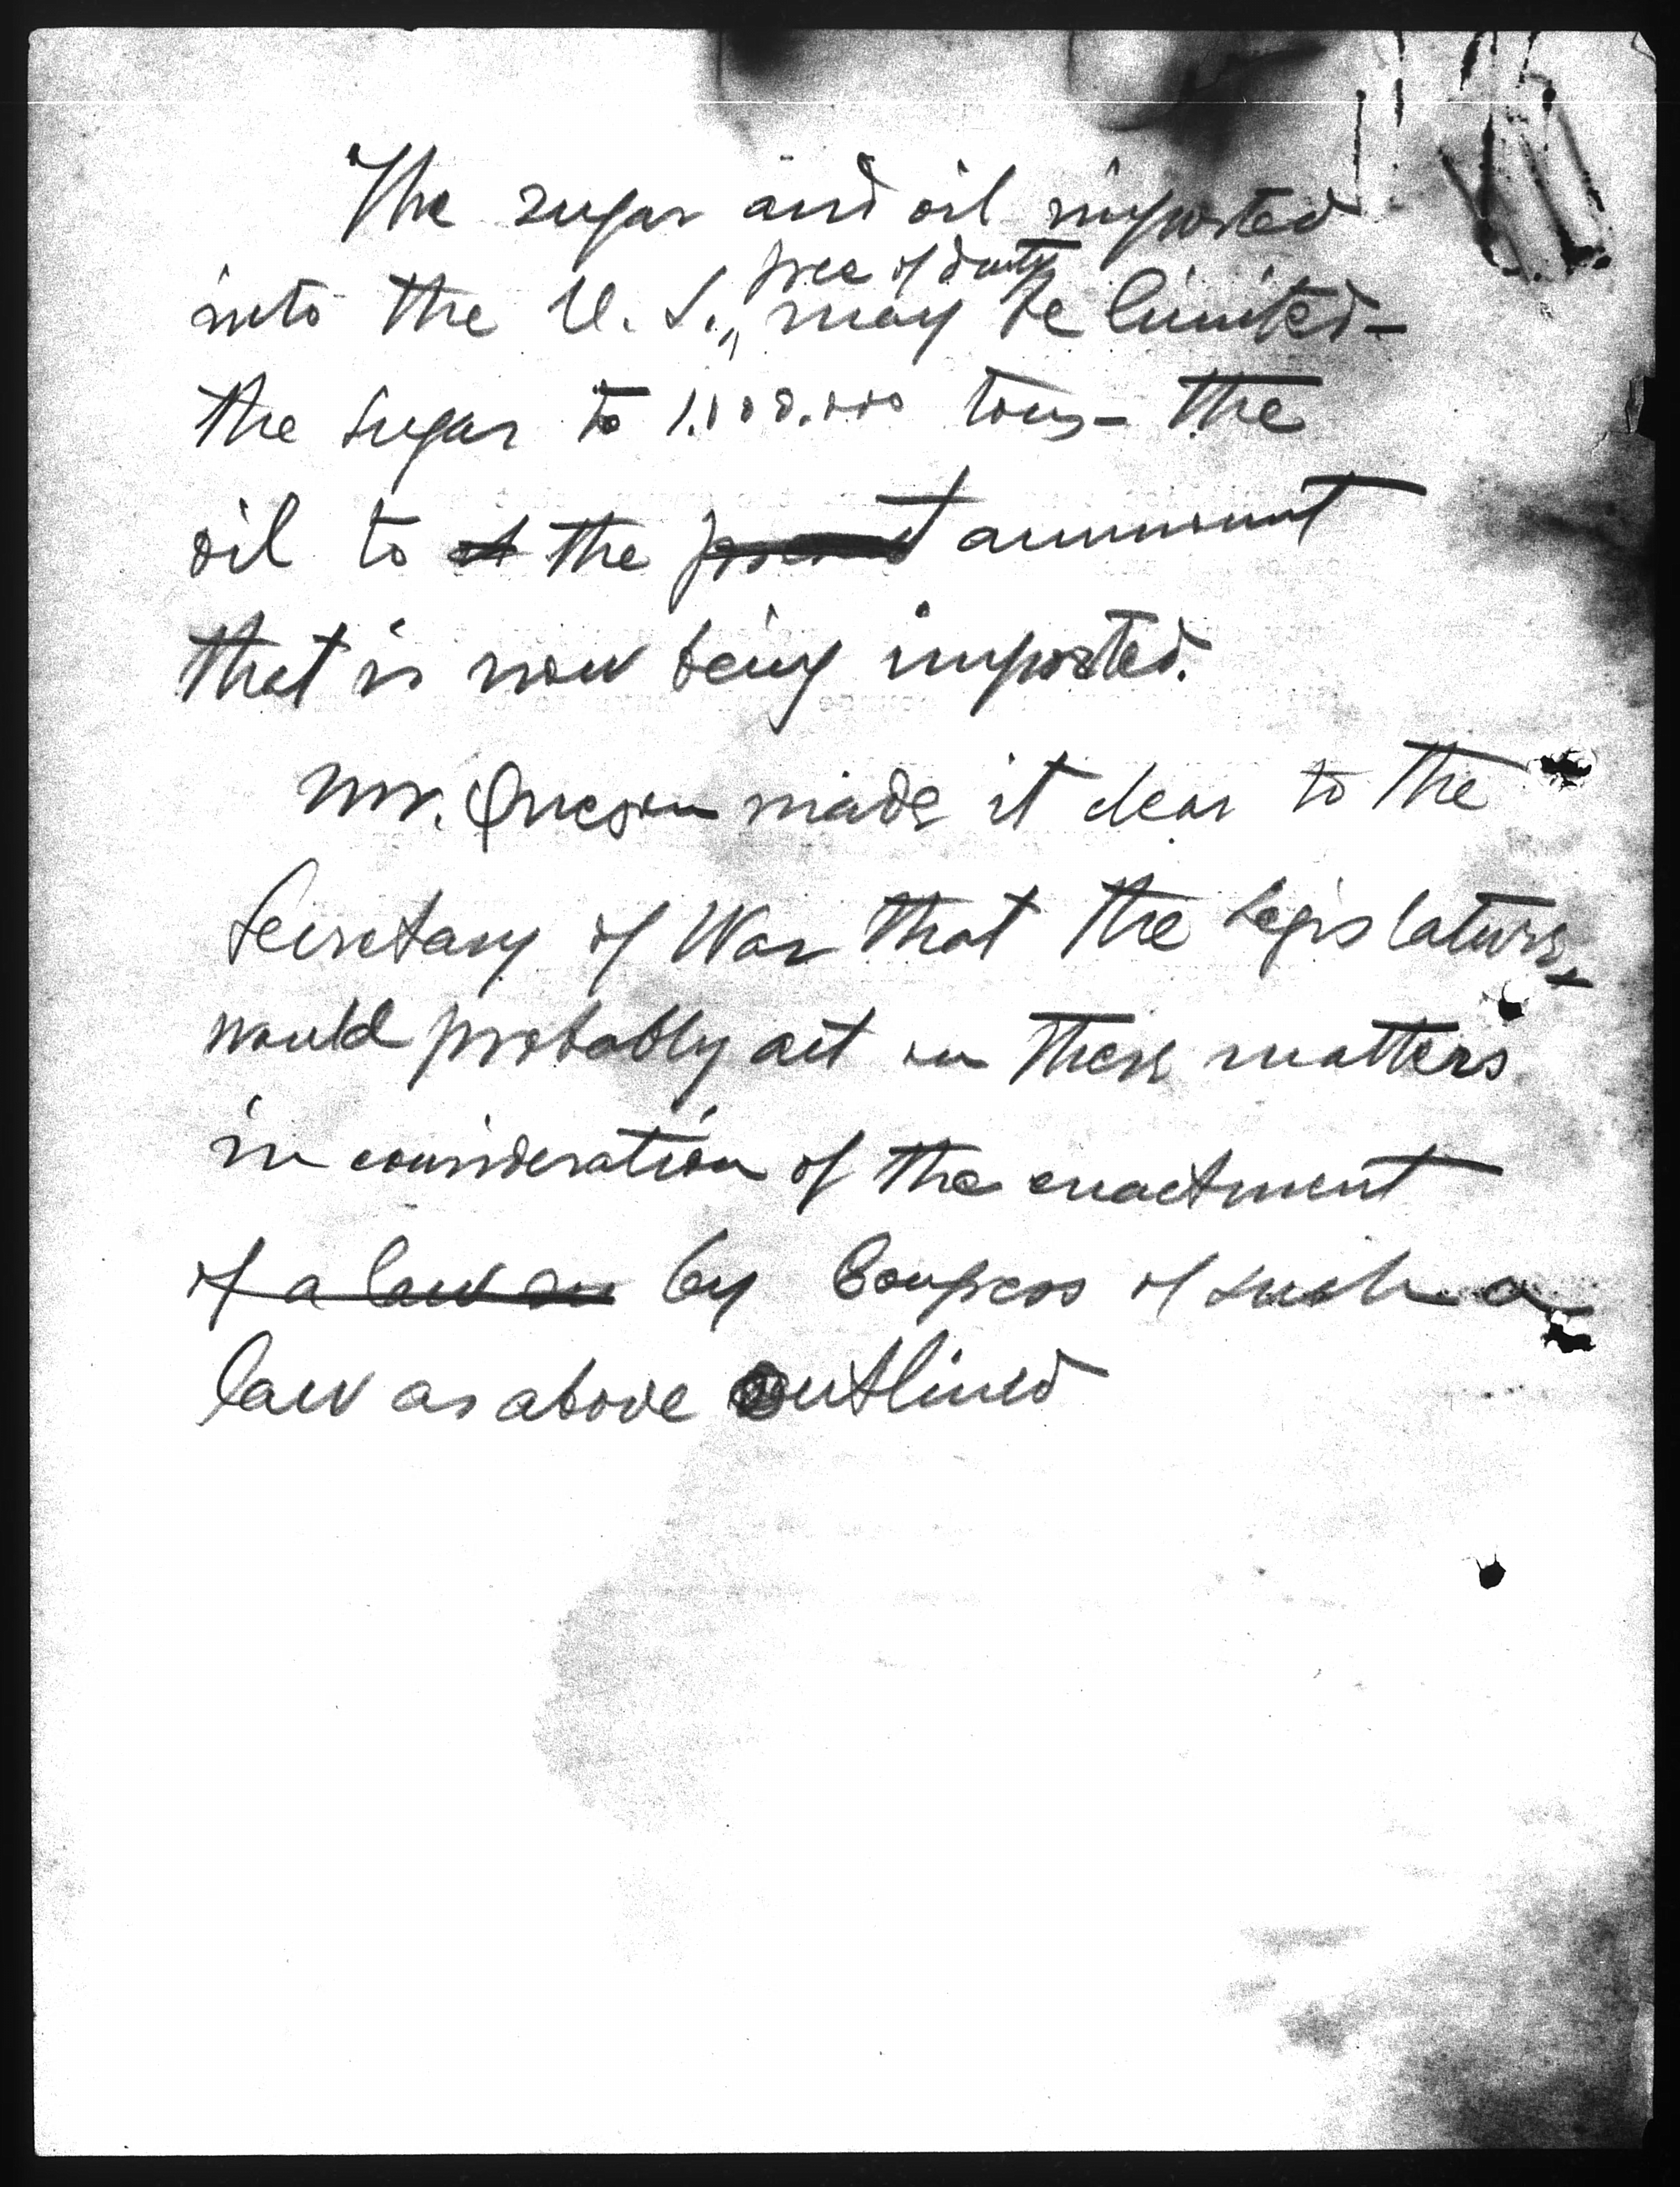 The sugar and oil imported
free of duty
into the U. S., may be limited-
the sugar to 1.000.000 tons- the
oil to the present ammount
that is now being imported.
Mr. Quezon made it clear to the
Secretary of War that the Legislature
would probably act on these matters
in consideration of the enactment
of a law by Congress of such a
law as above outlined